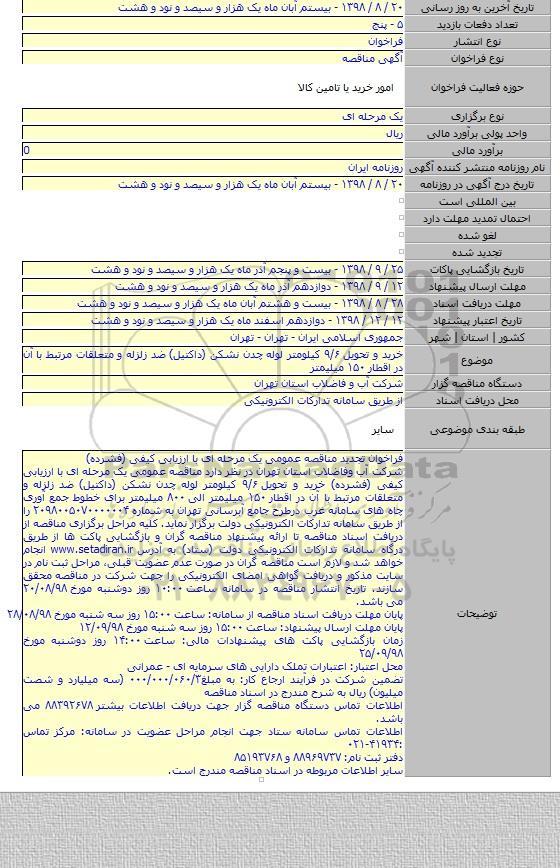 تاریخ آخرین به روز رسانی ۲۰ / ۸ / ۱۳۹۸ - بیستم آبان ماه یک هزار و سیصد و نود و هشت
تعداد دفعات بازدید ۵ - پنج
نوع انتشار فراخوان
نوع فراخوان آگهی مناقصه
حوزه فعالیت فراخوان امور خرید یا تامین کالا
نوع برگزاری یک مرحله ای
واحد پولی برآورد مالی ریال
برآورد مالی 0
نام روزنامه منتشر کننده آگهی روزنامه ایران
تاریخ درج آگهی در روزنامه ۲۰ / ۸ / ۱۳۹۸ - بیستم آبان ماه یک هزار و سیصد و نود و هشت
بین المللی است
احتمال تمدید مهلت دارد
لغو شده
تجدید شده
تاریخ بازگشایی پاکات ۲۵ / ۹ / ۱۳۹۸ - بیست و پنجم آذر ماه یک هزار و سیصد و نود و هشت
مهلت ارسال پیشنهاد ۱۲ / ۹ / ۱۳۹۸ - دوازدهم آذر ماه یک هزار و سیصد و نود و هشت
مهلت دریافت اسناد ۲۸ / ۸ / ۱۳۹۸ - بیست و هشتم آبان ماه یک هزار و سیصد و نود و هشت
تاریخ اعتبار پیشنهاد ۱۲ / ۱۲ / ۱۳۹۸ - دوازدهم اسفند ماه یک هزار و سیصد و نود و هشت
کشور | استان | شهر جمهوری اسلامی ایران - تهران - تهران
موضوع خرید و تحویل ۹/۶ کیلومتر لوله چدن نشکن (داکتیل) ضد زلزله و متعلقات مرتبط با آن
در اقطار ۱۵۰ میلیمتر
دستگاه مناقصه گزار شرکت آب و فاضلاب استان تهران
محل دریافت اسناد از طریق سامانه تدارکات الکترونیکی
طبقه بندی موضوعی سایر
توضیحات
فراخوان تجدید مناقصه عمومی یک مرحله ای با ارزیابی کیفی (فشرده)
شرکت آب وفاضلاب استان تهران در نظر دارد مناقصه عمومی یک مرحله ای با ارزیابی
کیفی (فشرده) خرید و تحویل ۹/۶ کیلومتر لوله چدن نشکن (داکتیل) ضد زلزله و
متعلقات مرتبط با آن در اقطار ۱۵۰ میلیمتر الی ۸۰۰ میلیمتر برای خطوط جمع آوری
چاه های سامانه غرب درطرح جامع آبرسانی تهران به شماره ۲۰۹۸۰۰۵۰۷۰۰۰۰۰۰۴ را
از طریق سامانه تدارکات الکترونیکی دولت برگزار نماید. کلیه مراحل برگزاری مناقصه از
دریافت اسناد مناقصه تا ارائه پیشنهاد مناقصه گران و بازگشایی پاکت ها از طریق
درگاه سامانه تدارکات الکترونیکی دولت (ستاد) به آدرس www.setadiran.ir انجام
خواهد شد و لازم است مناقصه گران در صورت عدم عضویت قبلی، مراحل ثبت نام در
سایت مذکور و دریافت گواهی امضای الکترونیکی را جهت شرکت در مناقصه محقق
سازند. تاریخ انتشار مناقصه در سامانه ساعت ۱۰:۰۰ روز دوشنبه مورخ ۲۰/۰۸/۹۸
می باشد.
پایان مهلت دریافت اسناد مناقصه از سامانه: ساعت ۱۵:۰۰ روز سه شنبه مورخ ۲۸/۰۸/۹۸
پایان مهلت ارسال پیشنهاد: ساعت ۱۵:۰۰ روز سه شنبه مورخ ۱۲/۰۹/۹۸
زمان بازگشایی پاکت های پیشنهادات مالی: ساعت ۱۴:۰۰ روز دوشنبه مورخ
۲۵/۰۹/۹۸
محل اعتبار: اعتبارات تملک دارایی های سرمایه ای - عمرانی
تضمین شرکت در فرآیند ارجاع کار: به مبلغ۰۰۰/۰۰۰/۰۶۰/۳ (سه میلیارد و شصت
میلیون) ریال به شرح مندرج در اسناد مناقصه
اطلاعات تماس دستگاه مناقصه گزار جهت دریافت اطلاعات بیشتر ۸۸۳۹۲۶۷۸ می
باشد.
اطلاعات تماس سامانه ستاد جهت انجام مراحل عضویت در سامانه: مرکز تماس
:۰۲۱-۴۱۹۳۴
دفتر ثبت نام: ۸۸۹۶۹۷۳۷ و ۸۵۱۹۳۷۶۸
سایر اطلاعات مربوطه در اسناد مناقصه مندرج است.